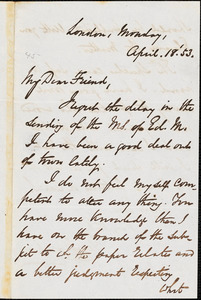 London, Monday,
April. 18. 53.
My Dear Friend,
I regret the delay in the
sending of the Ms. of Ed. M.
I have been a good deal out
of town lately.
I do not feel myself com-
petent to alter any thing. You
have more knowledge than I
have on the branch of the sub-
ject to wh. the paper relates and
a better judgment respecting